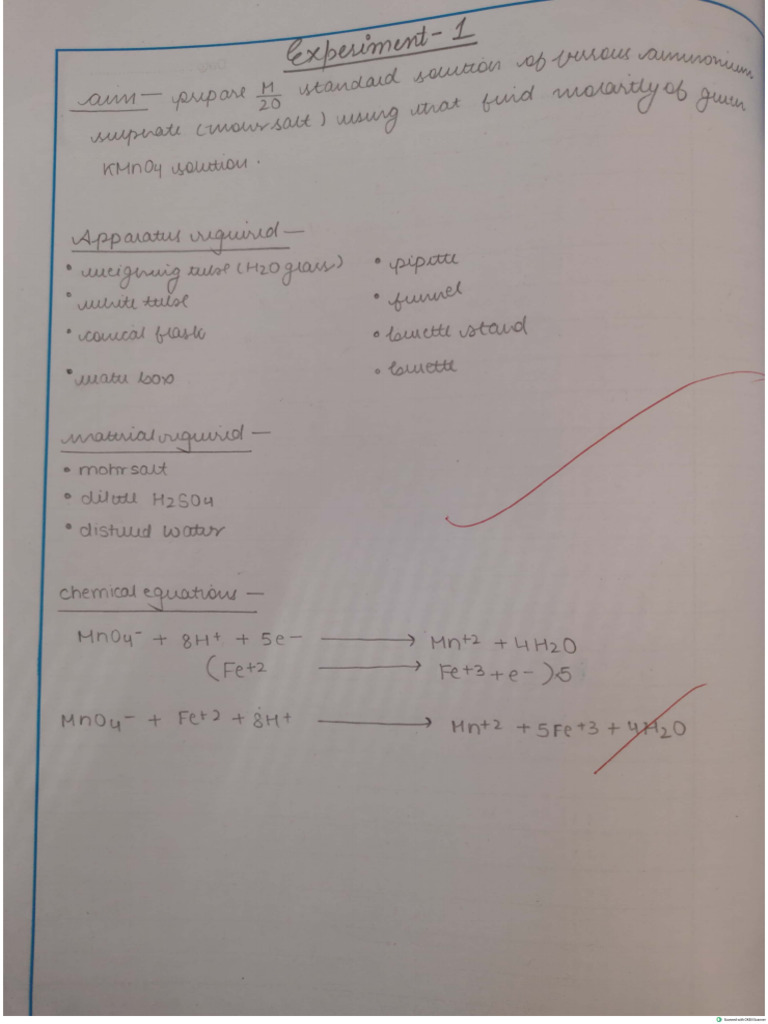 Experiment - 1
aim — prepare M/20 standard solution of ferrous ammonium
sulphate (mohr salt) using that find molarity of given
KMnO4 solution.
Apparatus required —
• weighing tube (H2O glass)
• pipette
• white tube
• funnel
• conical flask
• burette stand
• burette
material required —
• mohr salt
• dilute H2SO4
• distilled water
chemical equations —
MnO4- + 8H+ + 5e- → Mn+2 + 4H2O
(Fe+2 → Fe+3 + e-)5
MnO4- + Fe+2 + 8H+ → Mn+2 + 5Fe+3 + 4H2O